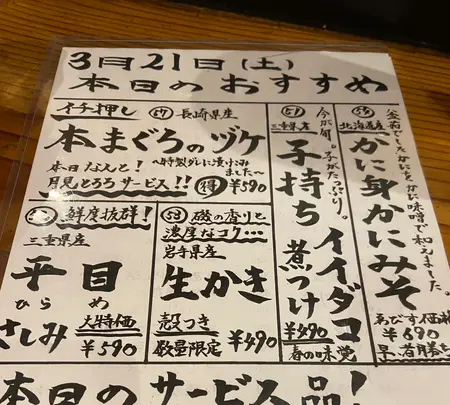 3月21日(土)
本日のおすすめ
イチ押し
57
長崎県産
本まぐろのヅケ
〜特製ダレに漬け込みました〜
本日なんと!
月見とろろサービス!!
得
¥590
51
三重県産
今が旬。子がたっぷり。
子持ちイイダコ煮つけ
¥490
春の味覚
北海道産
釜茹でしたかにをかに味噌で和えました。
かに身かにみそ
ゑびす価格
¥690
早い者勝ち
鮮度抜群!
三重県産
平目
ひらめ
さしみ
大特価
¥590
53
磯の香りと
濃厚なコク…
岩手県産
生かき
殻つき
数量限定
¥490
本日のサービス品!